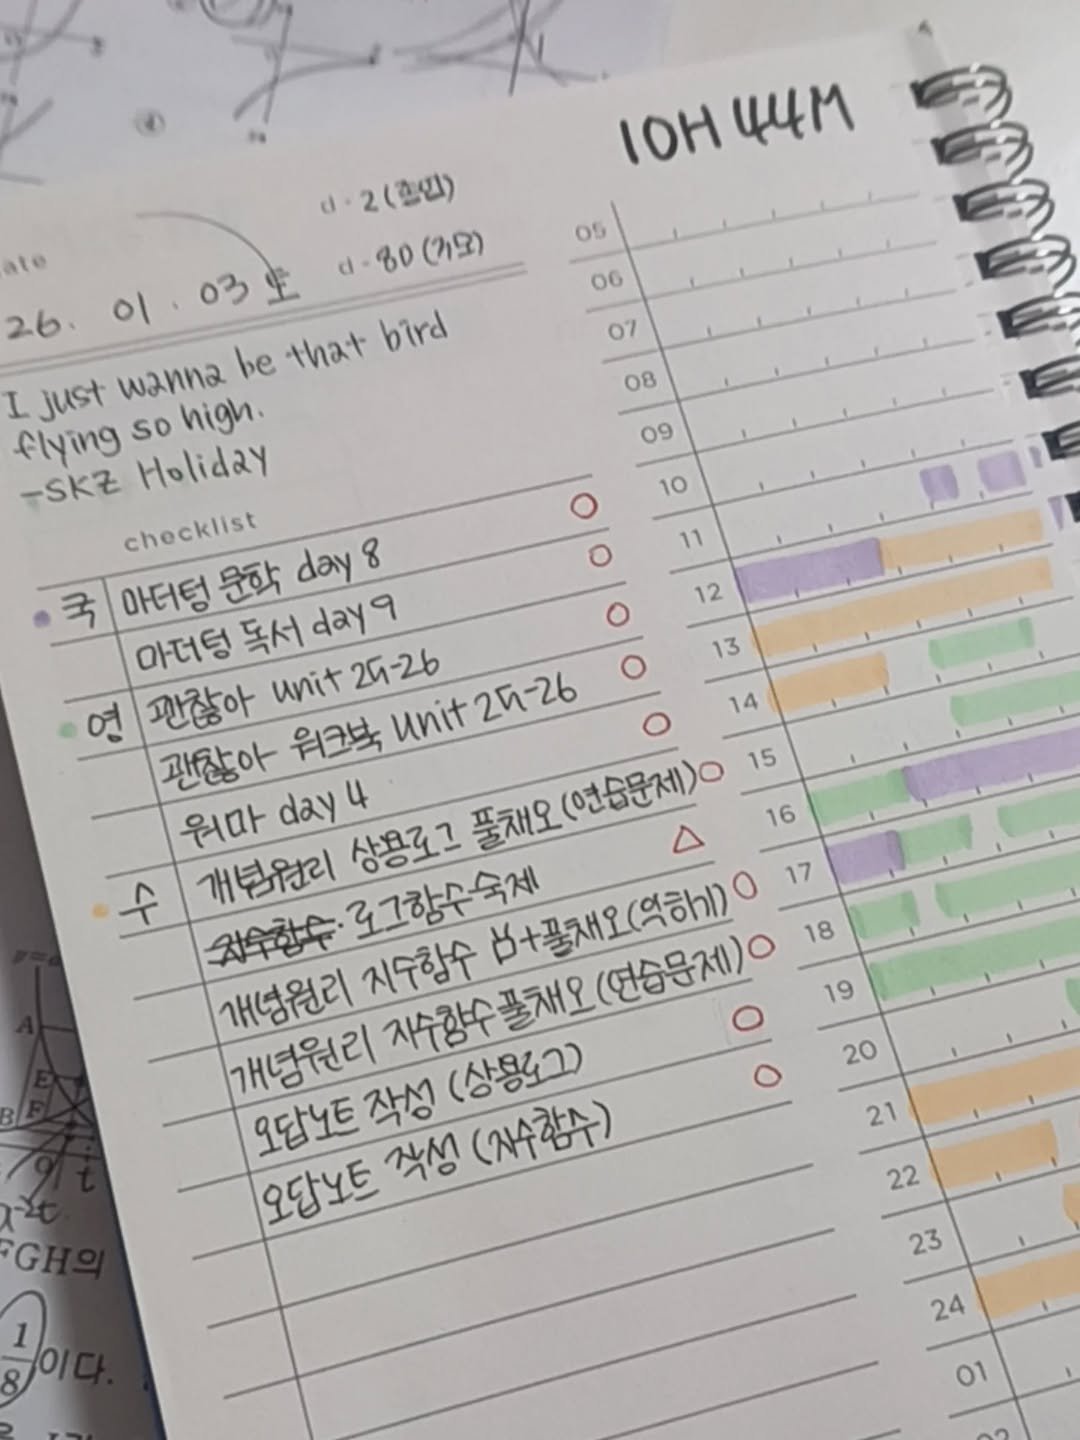 10H 44M
d-2(졸업)
d-80(3모)
26. 01. 03 토
I just wanna be that bird
flying so high.
-SKZ Holiday
checklist
국 마더텅 문학 day 8
마더텅 독서 day 9
영 괜찮아 unit 25-26
괜찮아 워크북 unit 25-26
워마 day 4
수 개념원리 상용로그 풀채오(연습문제)
지수함수·로그함수숙제
개념원리 지수함수 +풀채오(익히기)
개념원리 지수함수풀채오(연습문제)
오답노트 작성 (상용로그)
오답노트 작성 (지수함수)
05
06
07
08
09
10
11
12
13
14
15
16
17
18
19
20
21
22
23
24
01
A
E
B
F
t
FGH의
1/8 이다.